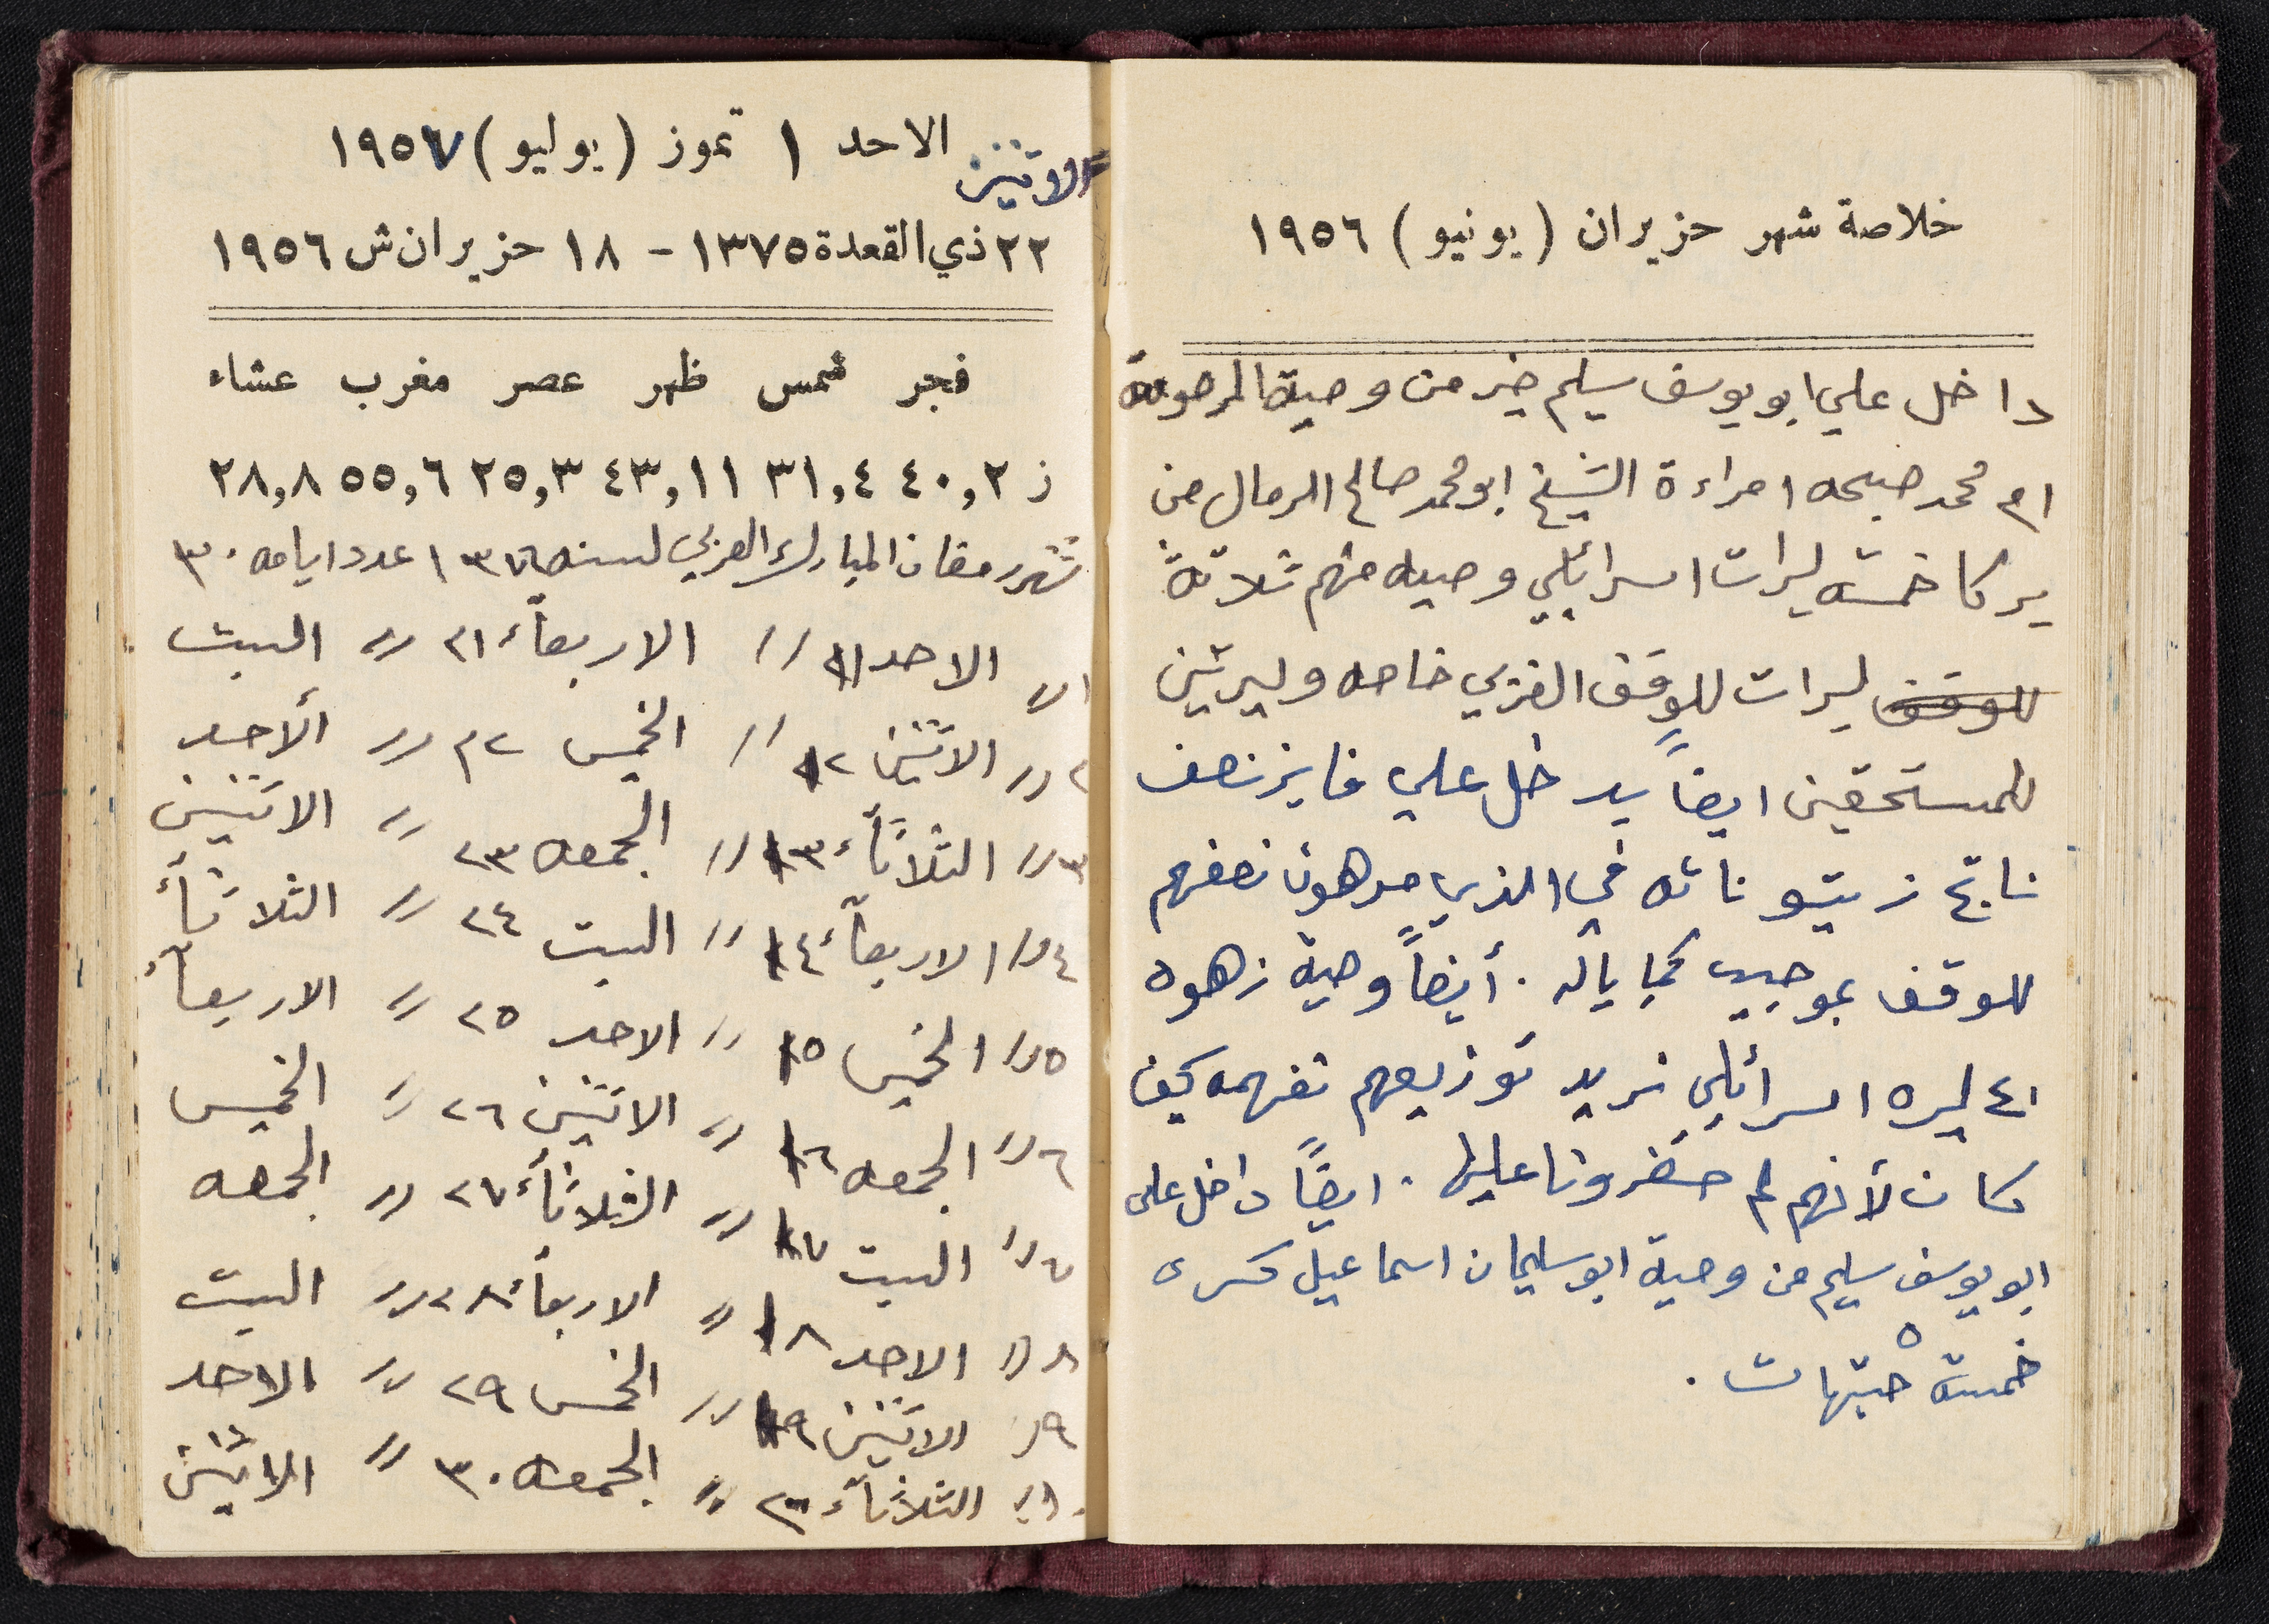 خلاصة شهر حزيران (يونيو) ١٩٥٦
داخل علي ابو يوسف سليم خير من وصية المرحومة
ام محمد صبحه امراءة الشيخ ابو محمد صالح الرمال من
يركا خمسه ليرات اسرائيلي وصيه منهم ثلاثة
للوقف ليرات للوقف الغربي خاصه وليرتين
للمستحقين ايضاً يدخل علي فايز نصف
ناتج زيتوناته في الذي مرهون نصفهم
للوقف بموجب كمبيالة. أيضاً وصية زهوه
٤١ ليره اسرائيلي نريد توزيعهم نفهمه كيف
كان لأنهم لم حضرونا عليها. ايضاً داخل علي
ابو يوسف سليم من وصية ابو سليمان اسماعيل كسرى
٥
خمسة جنيهات.
الاحد ١ تموز (يوليو) ١٩٥٧
الاثنين
٢٢ ذي القعدة ١٣٧٥ - ١٨ حزيران ش ١٩٥٦
فجر شمس ظهر عصر مغرب عشاء
ز ٤٠,٢ ٣١,٤ ٤٣,١١ ٢٥,٣ ٥٥,٦ ٢٨,٨
شهر رمضان المبارك العربي لسنه ١٣٧٦ عدد ايامه ٣٠
١ // الاحد ١١ // الاربعاء ٢١ // السبت
٢ // الاثنين ١٢ // الخميس ٢٢ // الأحد
٣ // الثلاثاء ١٣ // الجمعه ٢٣ // الاثنين
٤ // الاربعاء ١٤ // السبت ٢٤ // الثلاثاء
٥ // الخميس ١٥ // الاحد ٢٥ // الاربعاء
٦ // الجمعه ١٦ // الاثنين ٢٦ // الخميس
٧ // السبت ١٧ // الثلاثاء ٢٧ // الجمعه
٨ // الاحد ١٨ // الاربعاء ٢٨ // السبت
٩ // الاثنين ١٩ // الخمس ٢٩ // الاحد
١٠ // الثلاثاء ٢٠ // الجمعه ٣٠ // الاثنين